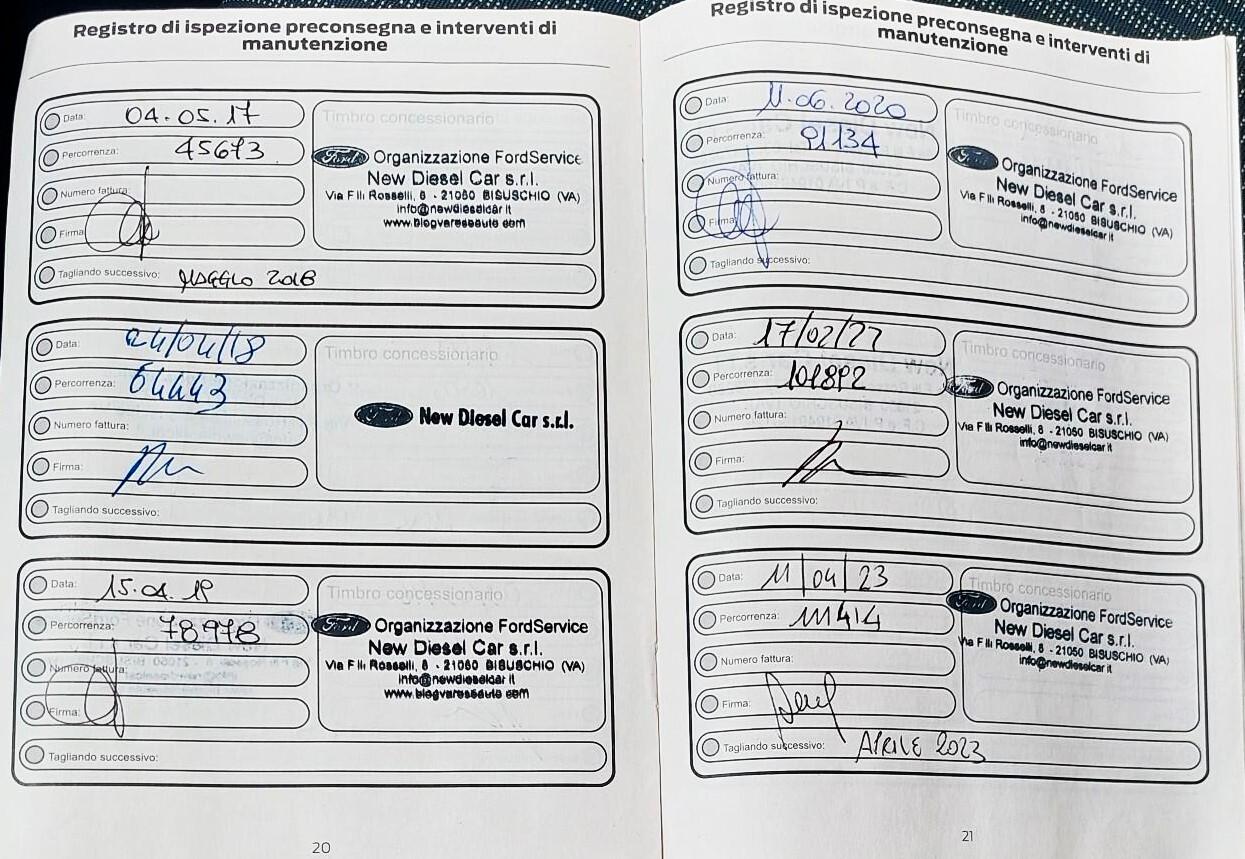 Registro di ispezione preconsegna e interventi di
manutenzione
Data: 04.05.17
Percorrenza: 45673
Numero fattura:
Firma
Tagliando successivo: MAGGIO 2018
Timbro concessionario
Ford Organizzazione FordService
New Diesel Car s.r.l.
Via F lli Rosselli, 8 - 21050 BISUSCHIO (VA)
info@newdieselcar it
www.blogvareseauto com
Data: 24/04/18
Percorrenza: 64443
Numero fattura:
Firma:
Tagliando successivo:
Timbro concessionario
Ford New Diesel Car s.r.l.
Data: 15.04.19
Percorrenza: 78978
Numero fattura:
Firma:
Tagliando successivo:
Timbro concessionario
Ford Organizzazione FordService
New Diesel Car s.r.l.
Via F lli Rosselli, 8 - 21050 BISUSCHIO (VA)
info@newdieselcar it
www.blogvareseauto com
20
Registro di ispezione preconsegna e interventi di
manutenzione
Data: 11.06.2020
Percorrenza: 91134
Numero fattura:
Firma:
Tagliando successivo:
Timbro concessionario
Ford Organizzazione FordService
New Diesel Car s.r.l.
Via F lli Rosselli, 8 - 21050 BISUSCHIO (VA)
info@newdieselcar it
Data: 17/02/22
Percorrenza: 101892
Numero fattura:
Firma:
Tagliando successivo:
Timbro concessionario
Ford Organizzazione FordService
New Diesel Car s.r.l.
Via F lli Rosselli, 8 - 21050 BISUSCHIO (VA)
info@newdieselcar it
Data: 11/04/23
Percorrenza: 111414
Numero fattura:
Firma:
Tagliando successivo: APRILE 2023
Timbro concessionario
Ford Organizzazione FordService
New Diesel Car s.r.l.
Via F lli Rosselli, 8 - 21050 BISUSCHIO (VA)
info@newdieselcar it
21